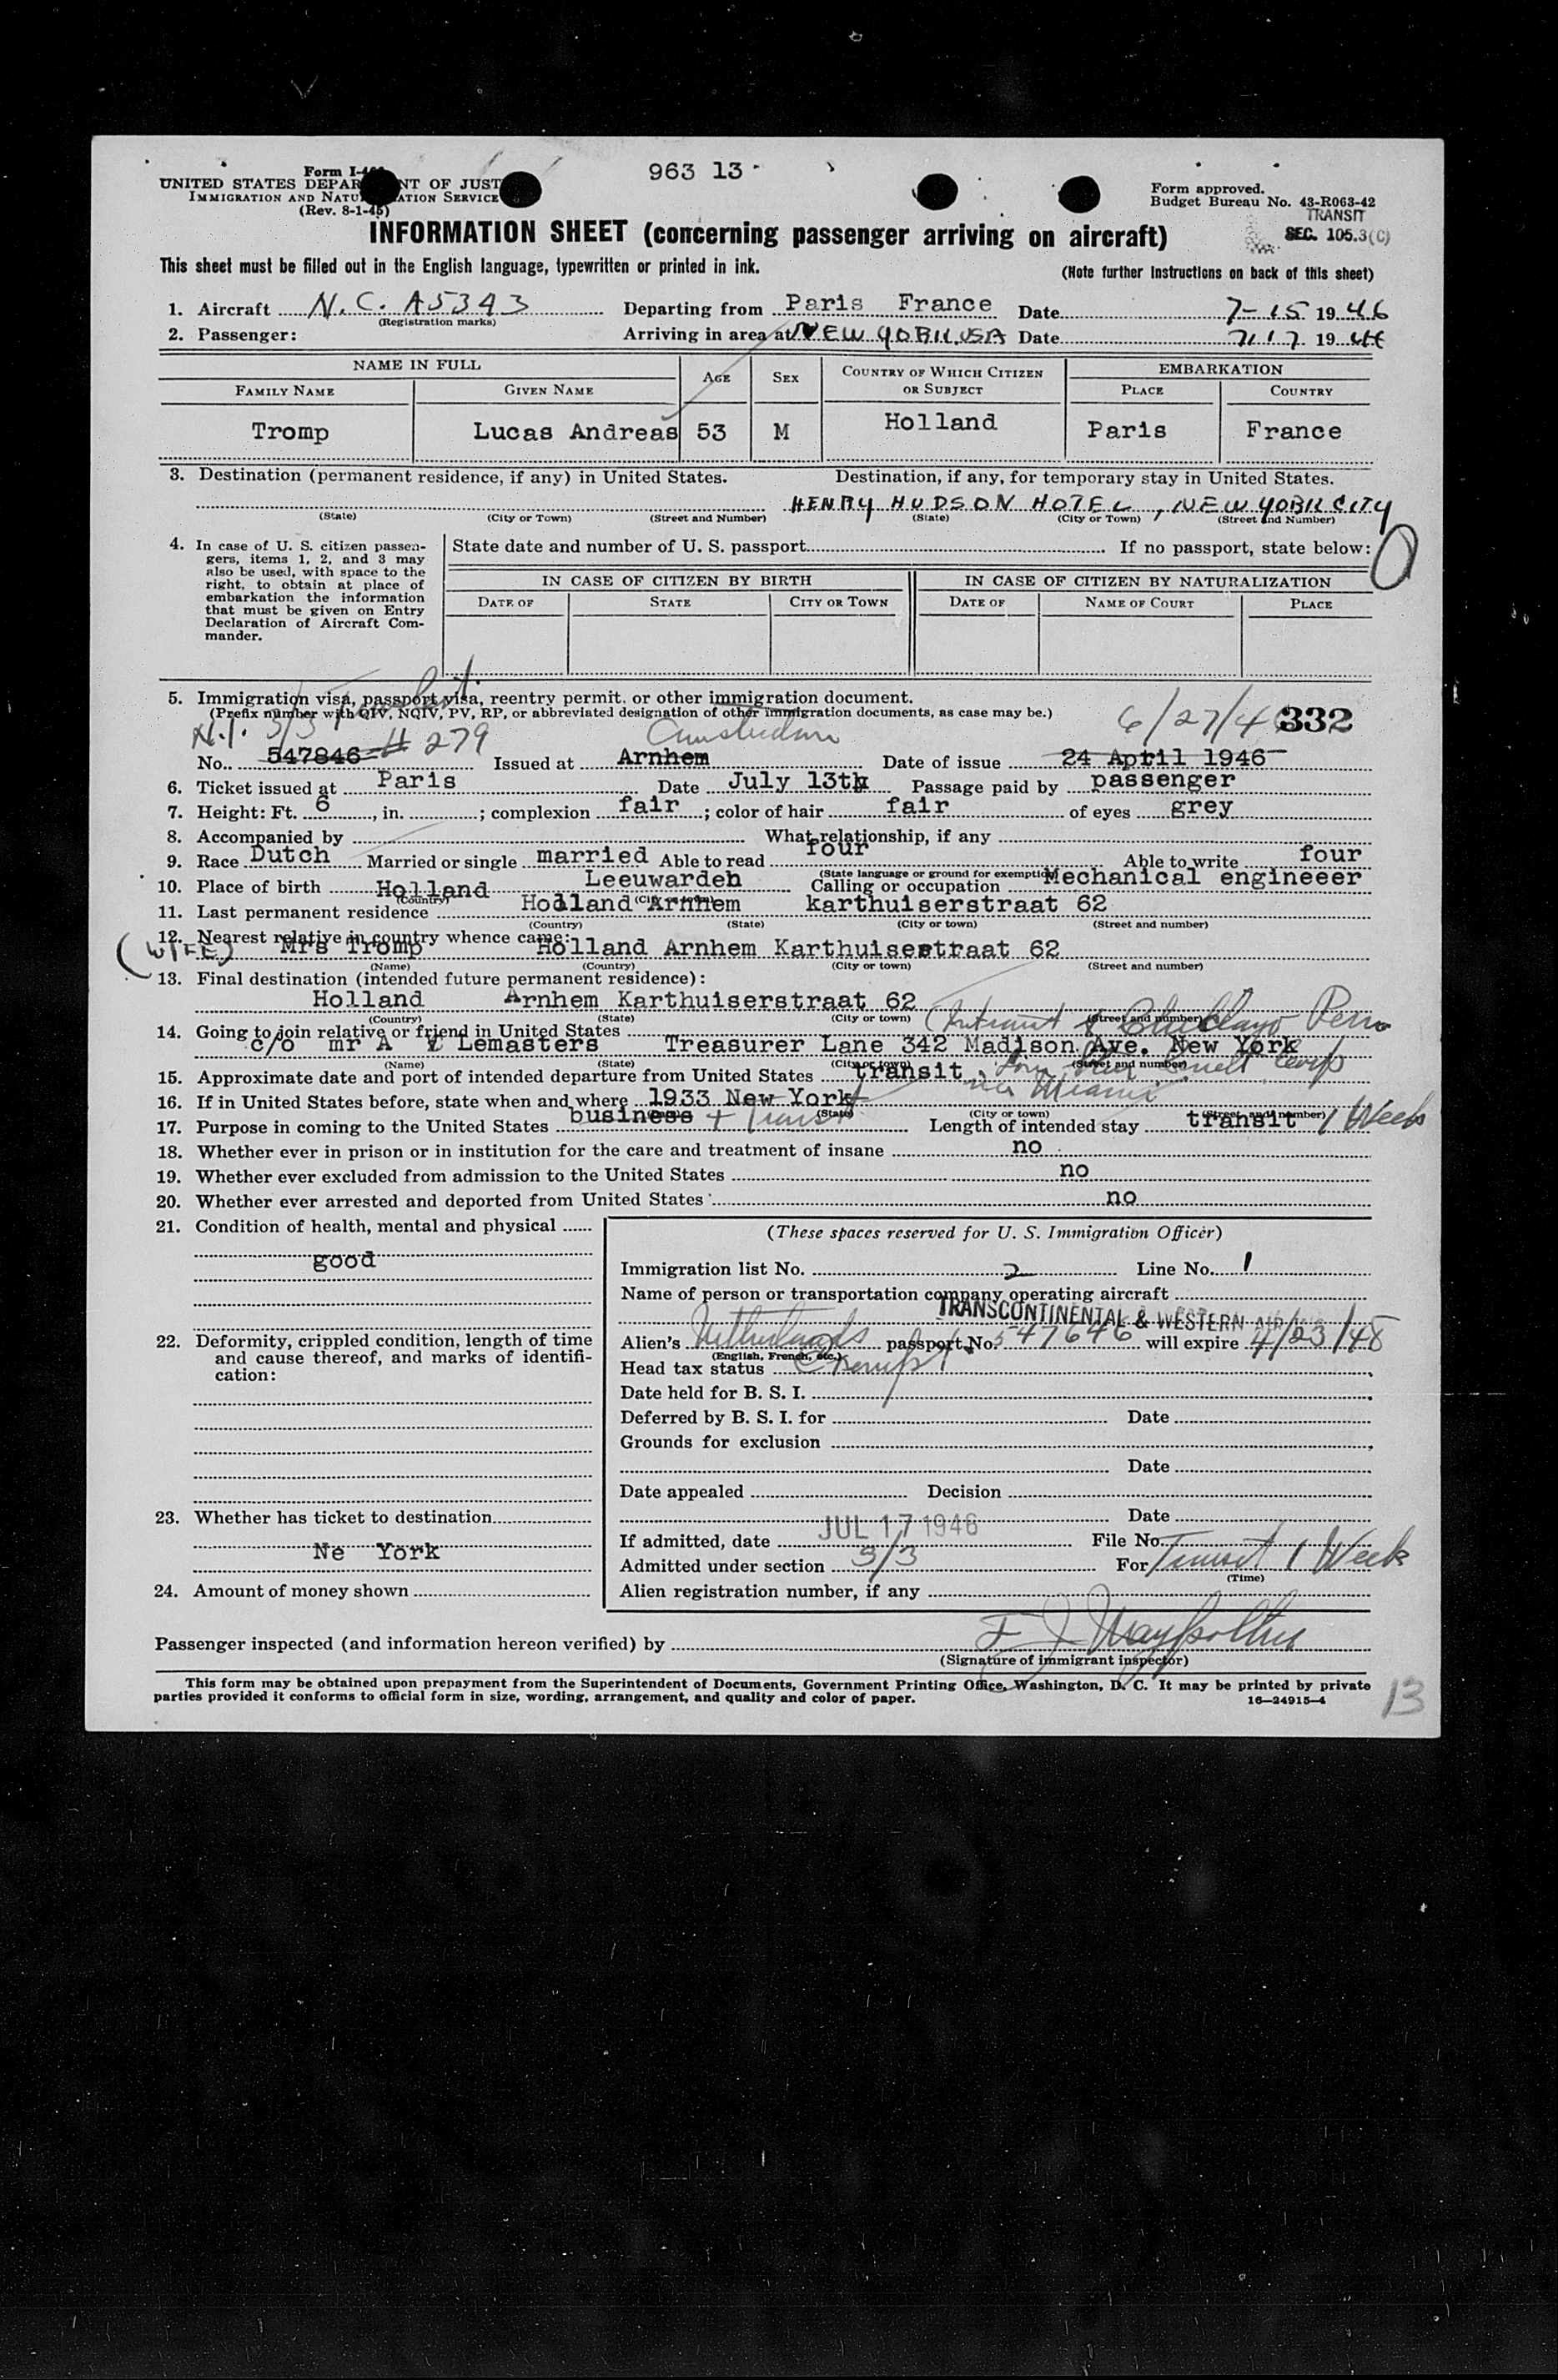 963 13
Form I-
UNITED STATES DEPAR NT OF JUST
IMMIGRATION AND NATU ATION SERVICE
(Rev. 8-1-45)
Form approved.
Budget Bureau No. 43-R063-42
TRANSIT
SEC. 105.3(C)
INFORMATION SHEET (concerning passenger arriving on aircraft)
This sheet must be filled out in the English language, typewritten or printed in ink.
(Note further instructions on back of this sheet)
1. Aircraft N.C. A5343 Departing from Paris France Date 7-15 1946
(Registration marks)
2. Passenger: Arriving in area at NEW YORK USA Date 7 17 1946
NAME IN FULL AGE SEX COUNTRY OF WHICH CITIZEN OR SUBJECT EMBARKATION
FAMILY NAME GIVEN NAME PLACE COUNTRY
Tromp Lucas Andreas 53 M Holland Paris France
3. Destination (permanent residence, if any) in United States. Destination, if any, for temporary stay in United States.
HENRY HUDSON HOTEL, NEW YORK CITY
(State) (City or Town) (Street and Number) (State) (City or Town) (Street and Number)
4. In case of U. S. citizen passengers, items 1, 2, and 3 may also be used, with space to the right, to obtain at place of embarkation the information that must be given on Entry Declaration of Aircraft Commander.
State date and number of U. S. passport If no passport, state below:
IN CASE OF CITIZEN BY BIRTH IN CASE OF CITIZEN BY NATURALIZATION
DATE OF STATE CITY OR TOWN DATE OF NAME OF COURT PLACE
5. Immigration visa, passport visa, reentry permit, or other immigration document.
(Prefix number with QIV, NQIV, PV, RP, or abbreviated designation of other immigration documents, as case may be.)
3/3 # 279 Amsterdam 6/27/46 332
No. 547846 Issued at Arnhem Date of issue 24 April 1946
6. Ticket issued at Paris Date July 13th Passage paid by passenger
7. Height: Ft. 6, in. ; complexion fair; color of hair fair of eyes grey
8. Accompanied by What relationship, if any
9. Race Dutch Married or single married Able to read four Able to write four
(State language or ground for exemption)
10. Place of birth Holland Leeuwarden Calling or occupation Mechanical engineeer
(Country) (City or town)
11. Last permanent residence Holland Arnhem karthuiserstraat 62
(Country) (State) (City or town) (Street and number)
12. Nearest relative in country whence came:
(WIFE) Mrs Tromp Holland Arnhem Karthuiserstraat 62
(Name) (Country) (City or town) (Street and number)
13. Final destination (intended future permanent residence):
Holland Arnhem Karthuiserstraat 62
(Country) (State) (City or town) (Street and number)
Intransit to Chiclayo Peru
14. Going to join relative or friend in United States
c/o mr A Lemasters Treasurer Lane 342 Madison Ave. New York
(Name) (State) (City or town) (Street and number)
15. Approximate date and port of intended departure from United States transit
via Miami
16. If in United States before, state when and where 1933 New York
(State) (City or town) (Street and number)
17. Purpose in coming to the United States business + Transit Length of intended stay transit 1 Week
18. Whether ever in prison or in institution for the care and treatment of insane no
19. Whether ever excluded from admission to the United States no
20. Whether ever arrested and deported from United States no
21. Condition of health, mental and physical
good
22. Deformity, crippled condition, length of time and cause thereof, and marks of identification:
23. Whether has ticket to destination
Ne York
24. Amount of money shown
(These spaces reserved for U. S. Immigration Officer)
Immigration list No. 2 Line No. 1
Name of person or transportation company operating aircraft
TRANSCONTINENTAL & WESTERN AIR
Alien's Netherlands passport No. 547646 will expire 4/23/48
(English, French, etc.)
Head tax status Exempt
Date held for B. S. I.
Deferred by B. S. I. for Date
Grounds for exclusion
Date
Date appealed Decision
Date
If admitted, date JUL 17 1946 File No.
Admitted under section 3/3 For Transit 1 Week
(Time)
Alien registration number, if any
Passenger inspected (and information hereon verified) by
(Signature of immigrant inspector)
This form may be obtained upon prepayment from the Superintendent of Documents, Government Printing Office, Washington, D. C. It may be printed by private
parties provided it conforms to official form in size, wording, arrangement, and quality and color of paper. 16—24915-4
13